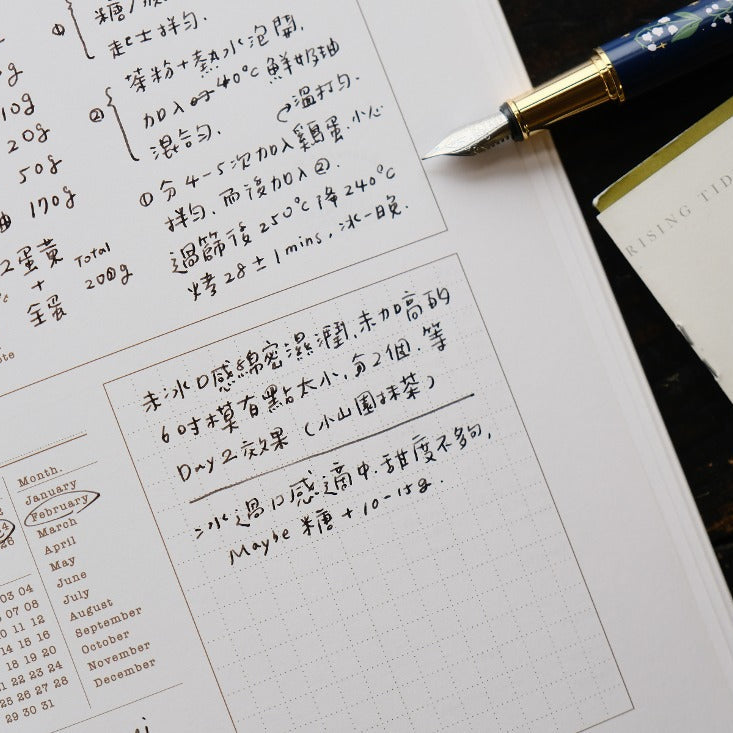 糖/
① 起士拌勻.
② 茶粉+熱水泡開,
加入 40°C 鮮奶油
混合勻.
溫打勻.
① 分 4-5次加入雞蛋.小心
拌勻,而後加入②.
過篩後 250°C 降 240°C
烤 28±1mins,冰一晚.
10g
20g
50g
油 170g
2蛋黃
+
全蛋
Total
200g
未冰口感綿密濕潤,未加高的
6吋模有點太小,分2個.等
Day 2 效果 (小山園抹茶)
冰過口感適中.甜度不夠,
Maybe 糖+10-15g.
Month.
January
February
March
April
May
June
July
August
September
October
November
December
03 04
07 08
10 11 12
14 15 16
18 19 20
21 22 23 24
25 26 27 28
29 30 31
RISING TID